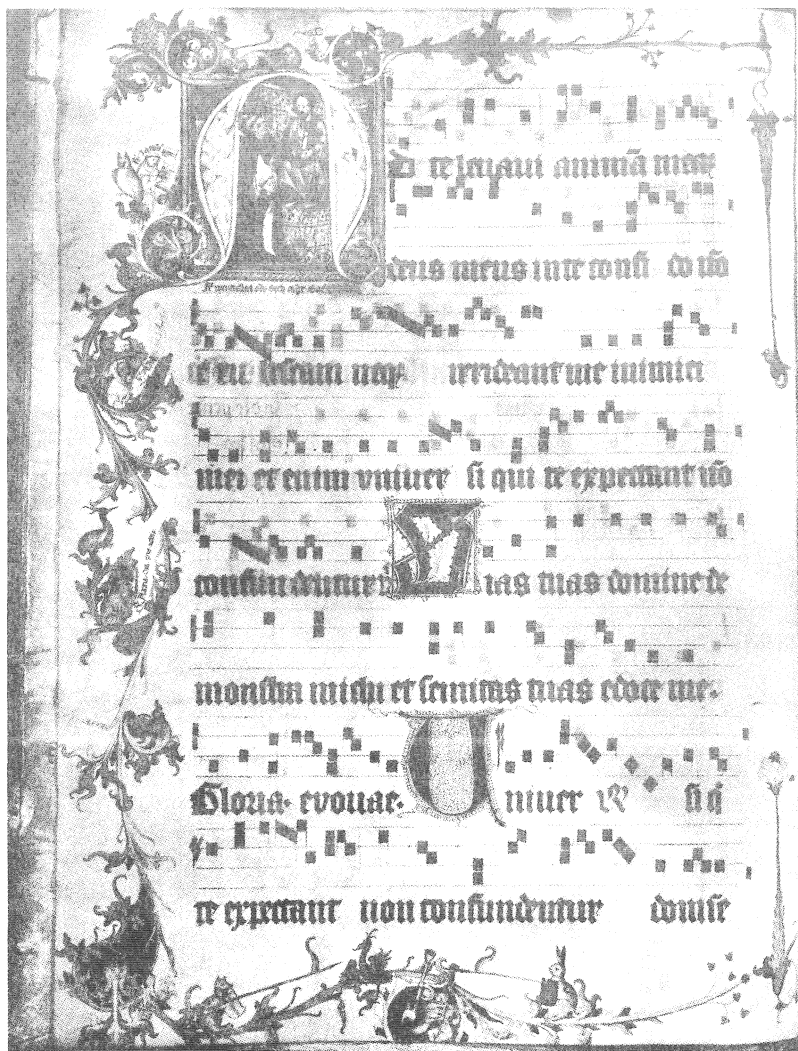 AD te leuaui animā meā
deus meus in te confi do nō
e ru bescam neq; irrideant me inimici
mei et enim vniuer si qui te expectant nō
confun dentur V ias tuas domine de
monstra michi et semitas tuas edoce me.
Gloria. evouae. Uniuer si q̄
te expectant non confundentur domīe